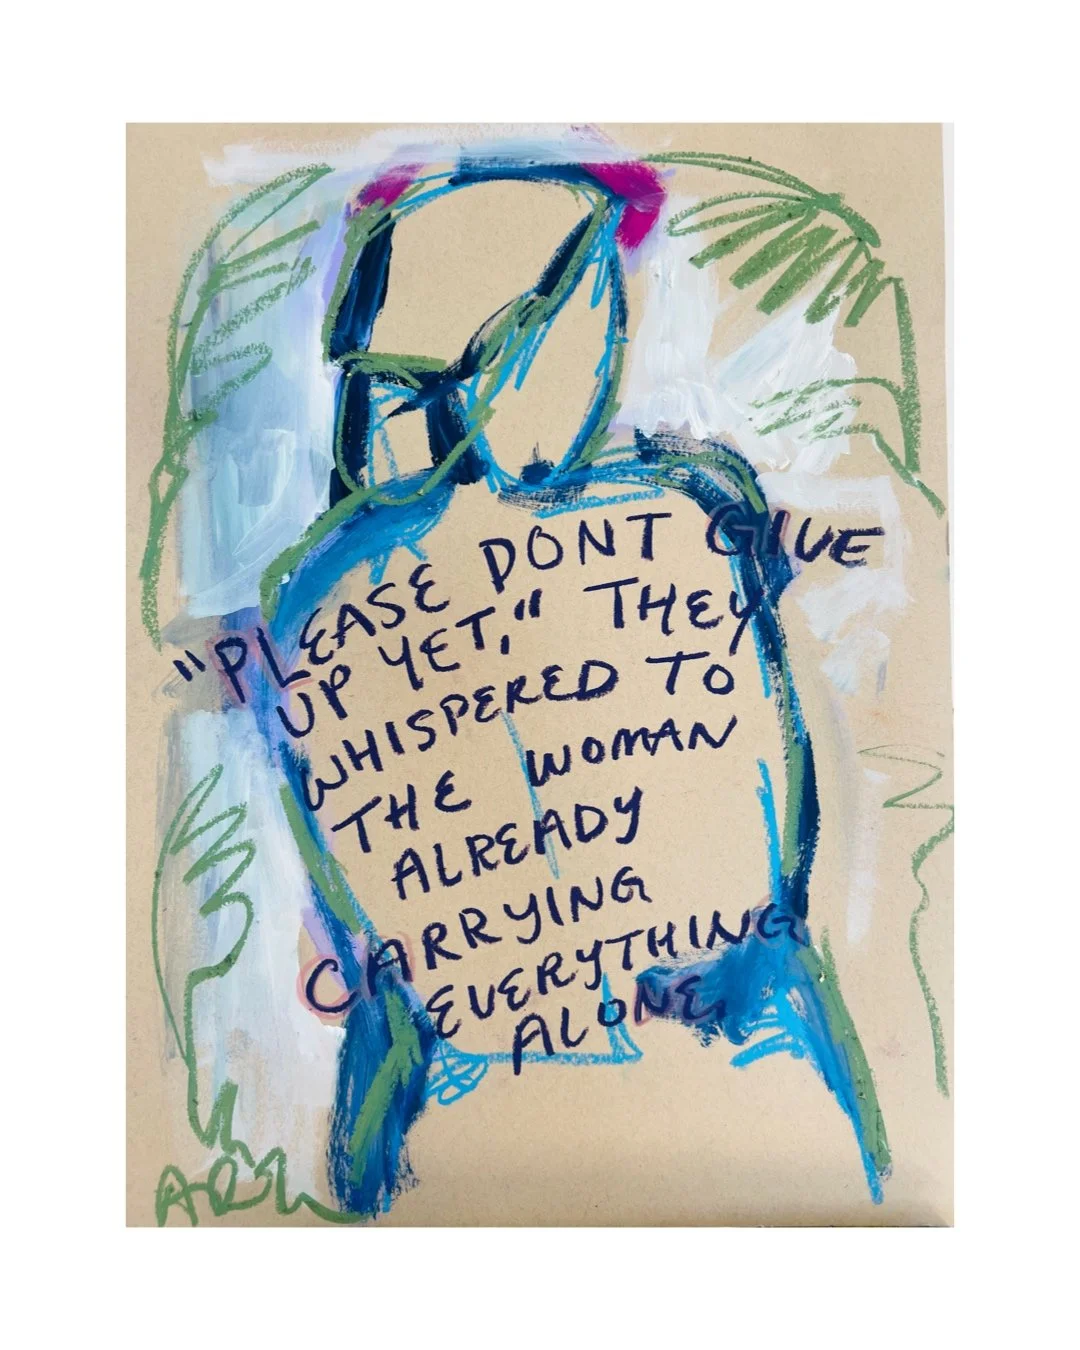 "PLEASE DONT GIVE
UP YET," THEY
WHISPERED TO
THE WOMAN
ALREADY
CARRYING
EVERYTHING
ALONE.